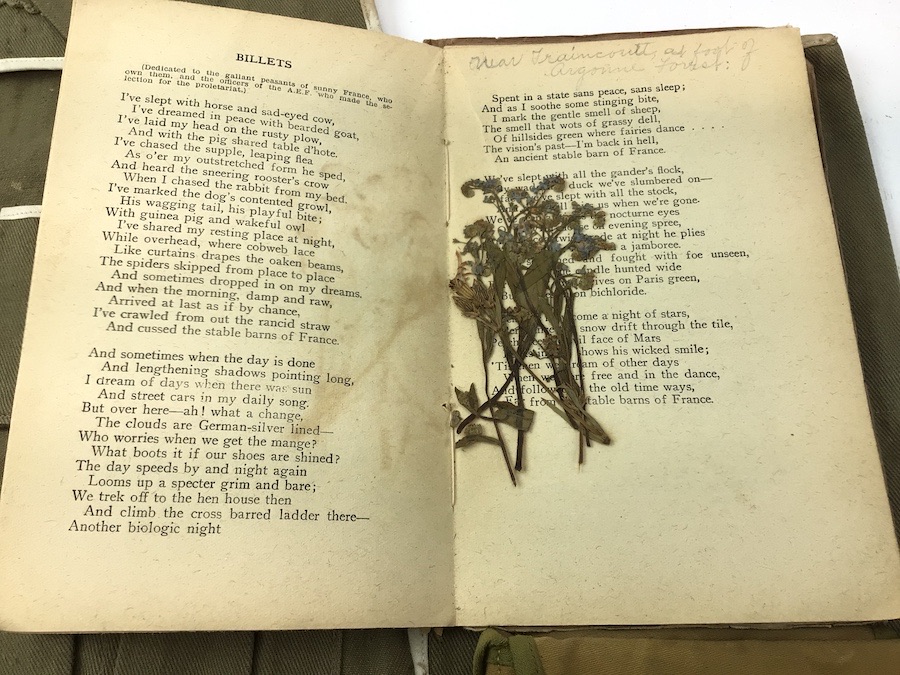 BILLETS
(Dedicated to the gallant peasants of sunny France, who
own them, and the officers of the A.E.F. who made the se-
lection for the proletariat.)
I've slept with horse and sad-eyed cow,
I've dreamed in peace with bearded goat,
I've laid my head on the rusty plow,
And with the pig shared table d'hote.
I've chased the supple, leaping flea
As o'er my outstretched form he sped,
And heard the sneering rooster's crow
When I chased the rabbit from my bed.
I've marked the dog's contented growl,
His wagging tail, his playful bite;
With guinea pig and wakeful owl
I've shared my resting place at night,
While overhead, where cobweb lace
Like curtains drapes the oaken beams,
The spiders skipped from place to place
And sometimes dropped in on my dreams.
And when the morning, damp and raw,
Arrived at last as if by chance,
I've crawled from out the rancid straw
And cussed the stable barns of France.
And sometimes when the day is done
And lengthening shadows pointing long,
I dream of days when there was sun
And street cars in my daily song.
But over here—ah! what a change,
The clouds are German-silver lined—
Who worries when we get the mange?
What boots it if our shoes are shined?
The day speeds by and night again
Looms up a specter grim and bare;
We trek off to the hen house then
And climb the cross barred ladder there—
Another biologic night
Near Traincourt, at foot of
Argonne Forest:
Spent in a state sans peace, sans sleep;
And as I soothe some stinging bite,
I mark the gentle smell of sheep,
The smell that wots of grassy dell,
Of hillsides green where fairies dance ....
The vision's past—I'm back in hell,
An ancient stable barn of France.
We've slept with all the gander's flock,
duck we've slumbered on—
slept with all the stock,
us when we're gone.
nocturne eyes
on evening spree,
at night he plies
a jamboree.
and fought with foe unseen,
candle hunted wide
on Paris green,
bichloride.
come a night of stars,
snow drift through the tile,
face of Mars
shows his wicked smile;
'Tis then we dream of other days
When we were free and in the dance,
And follow the old time ways,
Far from stable barns of France.